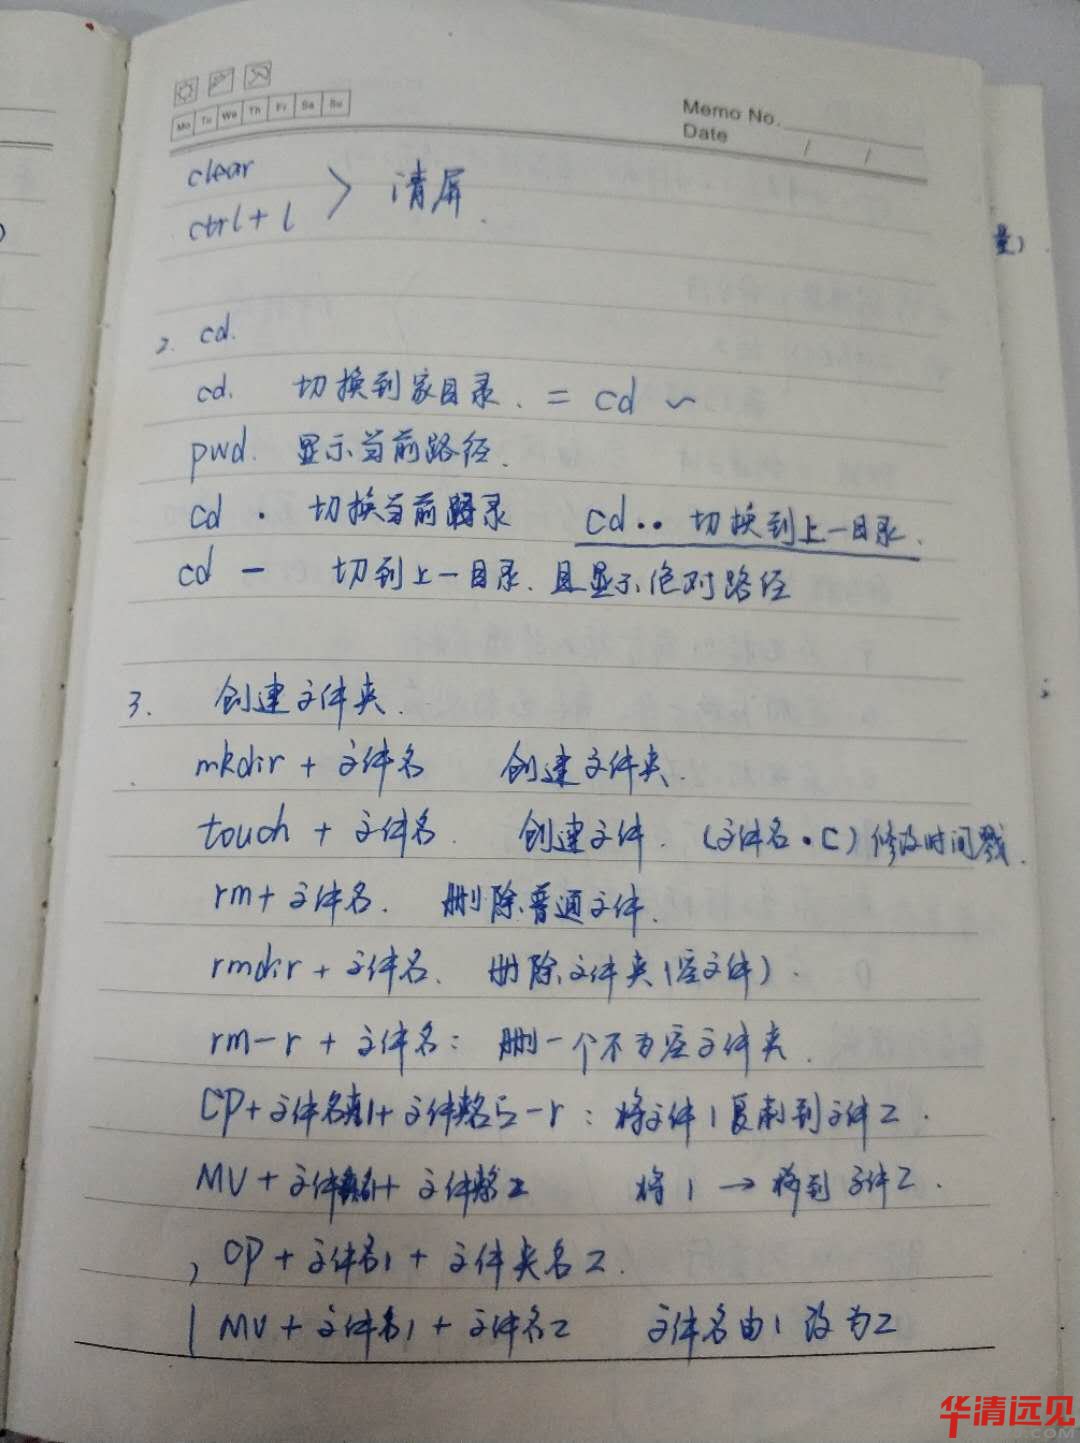 Mo Tu We Th Fr Sa Su
Memo No.
Date / /
clear
ctrl+l > 清屏.
量)
2. cd.
cd. 切换到家目录. = cd ~
pwd. 显示当前路径.
cd · 切换当前目录 cd·· 切换到上一目录.
cd — 切到上一目录.且显示绝对路径
3. 创建文件夹.
mkdir + 文件名 创建文件夹.
touch + 文件名. 创建文件. (文件名·C) 修改时间戳.
rm+文件名. 删除普通文件.
rmdir + 文件名. 删除文件夹(空文件).
rm-r + 文件名: 删一个不为空文件夹.
CP+文件夹1+文件夹名2-r: 将文件1复制到文件2.
MV+文件夹1+文件夹2 将1→移到文件2.
cp+文件名1+文件夹名2.
MV+文件名1+文件名2 文件名由1改为2
华清远见